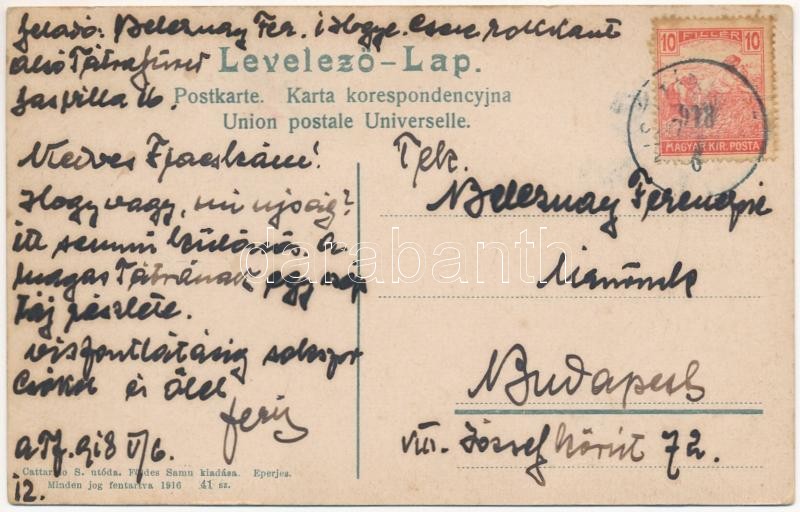 feladó: Beleznay Fer. i. Hgye. Csere rokkant
alsó Tátrafüred
Levelező-Lap.
villa 16.
Postkarte. Karta korespondencyjna
Union postale Universelle.
10 FILLÉR 10
918
MAGYAR KIR. POSTA
Kedves
Hogy vagy, mi ujság?
itt semmi különös. a
magas Tátrának egy szép
táj részlete.
viszontlátásig sokszor
Csókol és ölel
Feri
a.Tf. 918 V/6.
Tek.
Beleznay Ferenczné
Úrnőnek
Budapest
VIII. József körút 72.
darabanth
Cattarino S. utóda. Földes Samu kiadása. Eperjes.
Minden jog fentartva 1916 41 sz.
12.